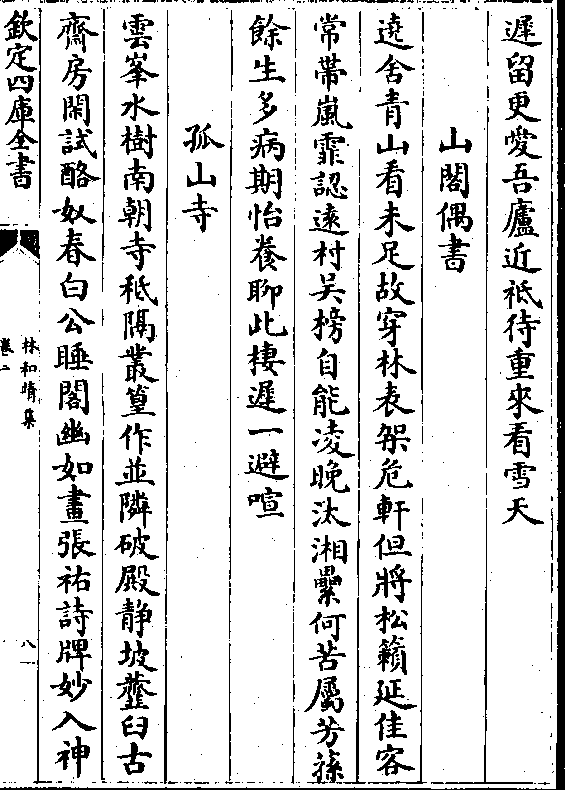 遲留更愛吾廬近祗待重來看雪天
山閣偶書
遶舍青山看未足故穿林表架危軒但將松籟延佳客
常帶嵐霏認逺村吴榜自能凌晚汰湘纍何苦屬芳蓀
餘生多病期怡養聊此棲遲一避喧
孤山寺
雲峯水樹南朝寺秪隔叢篁作並隣破殿静披虀臼古
齋房閑試酪奴春白公睡閣幽如畫張祐詩牌妙入神
欽定四庫全書
林和靖集
八